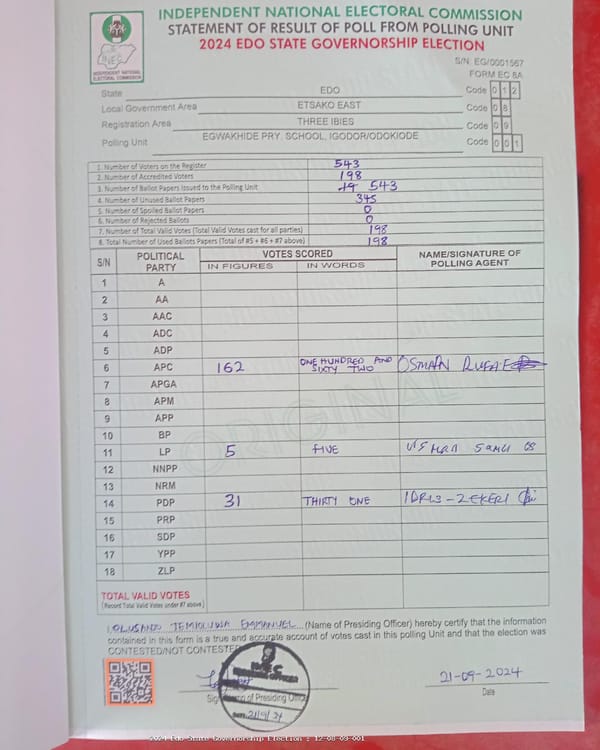 INDEPENDENT NATIONAL ELECTORAL COMMISSION
STATEMENT OF RESULT OF POLL FROM POLLING UNIT
2024 EDO STATE GOVERNORSHIP ELECTION
INEC
INDEPENDENT NATIONAL ELECTORAL COMMISSION
S/N: EG/0001567
FORM EC 8A
State EDO Code 0 1 2
Local Government Area ETSAKO EAST Code 0 8
Registration Area THREE IBIES Code 0 9
Polling Unit EGWAKHIDE PRY. SCHOOL, IGODOR/ODOKIODE Code 0 0 1
1. Number of Voters on the Register 543
2. Number of Accredited Voters 198
3. Number of Ballot Papers Issued to the Polling Unit 543
4. Number of Unused Ballot Papers 345
5. Number of Spoiled Ballot Papers 0
6. Number of Rejected Ballots 0
7. Number of Total Valid Votes (Total Valid Votes cast for all parties) 198
8. Total Number of Used Ballots Papers (Total of #5 + #6 + #7 above) 198
S/N POLITICAL PARTY VOTES SCORED NAME/SIGNATURE OF POLLING AGENT
IN FIGURES IN WORDS
1 A
2 AA
3 AAC
4 ADC
5 ADP
6 APC 162 ONE HUNDRED AND SIXTY TWO OSMAN RUFAE
7 APGA
8 APM
9 APP
10 BP
11 LP 5 FIVE
12 NNPP
13 NRM
14 PDP 31 THIRTY ONE IDRIS-ZEKERI
15 PRP
16 SDP
17 YPP
18 ZLP
ORIGINAL
TOTAL VALID VOTES
(Record Total Valid Votes under #7 above)
I, OLUSANO TEMIOLUWA EMMANUEL (Name of Presiding Officer) hereby certify that the information
contained in this form is a true and accurate account of votes cast in this polling Unit and that the election was
CONTESTED/NOT CONTESTED
INEC
PRESIDING OFFICER
Signature of Presiding Officer
Date 21/9/24
21-09-2024
Date
2024 Edo State Governorship Election : 12-08-09-001